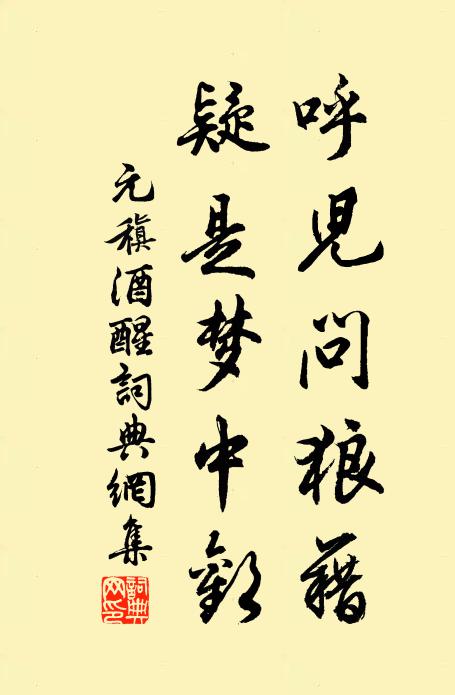 呼兒問狼藉
疑是梦中歡
元稹酒醒詞典網集
詞典
网印